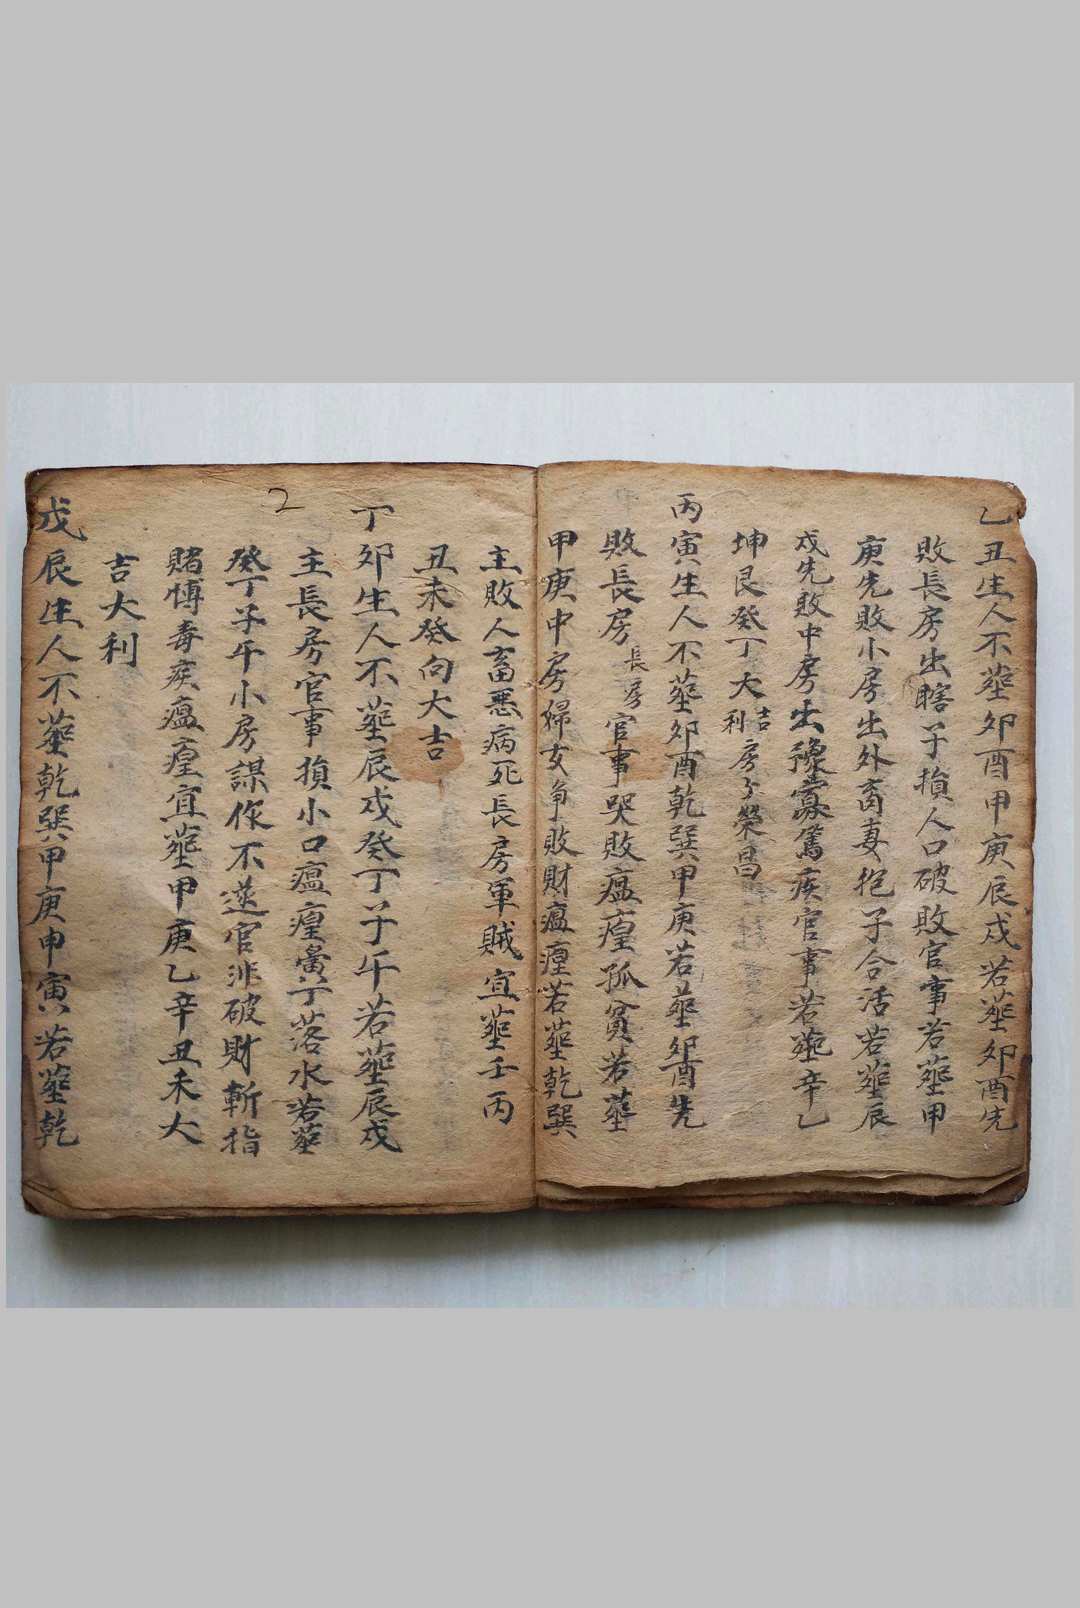 乙丑生人不葬卯酉甲庚辰戌若葬卯酉先
敗長房出瞎子損人口破敗官事若葬甲
庚先敗小房出外畜妻抱子合活若葬辰
戌先敗中房出 寡篤疾官事若葬辛乙
坤艮癸丁大吉利房子榮昌
丙寅生人不葬卯酉乾巽甲庚若葬卯酉先
敗長房長房官事哭敗瘟瘟孤貧若葬
甲庚中房婦女争敗財瘟瘟若葬乾巽
主敗人畜悪病死長房軍賊宜葬壬丙
丑未癸向大吉
2
丁卯生人不葬辰戌癸丁子午若葬辰戌
主長房官事損小口瘟 落水若葬
癸丁子午小房謀作不遂官非破財斬指
賭愽毒疾瘟 宜葬甲庚乙辛丑未大
吉大利
戊辰生人不葬乾巽甲庚申寅若葬乾